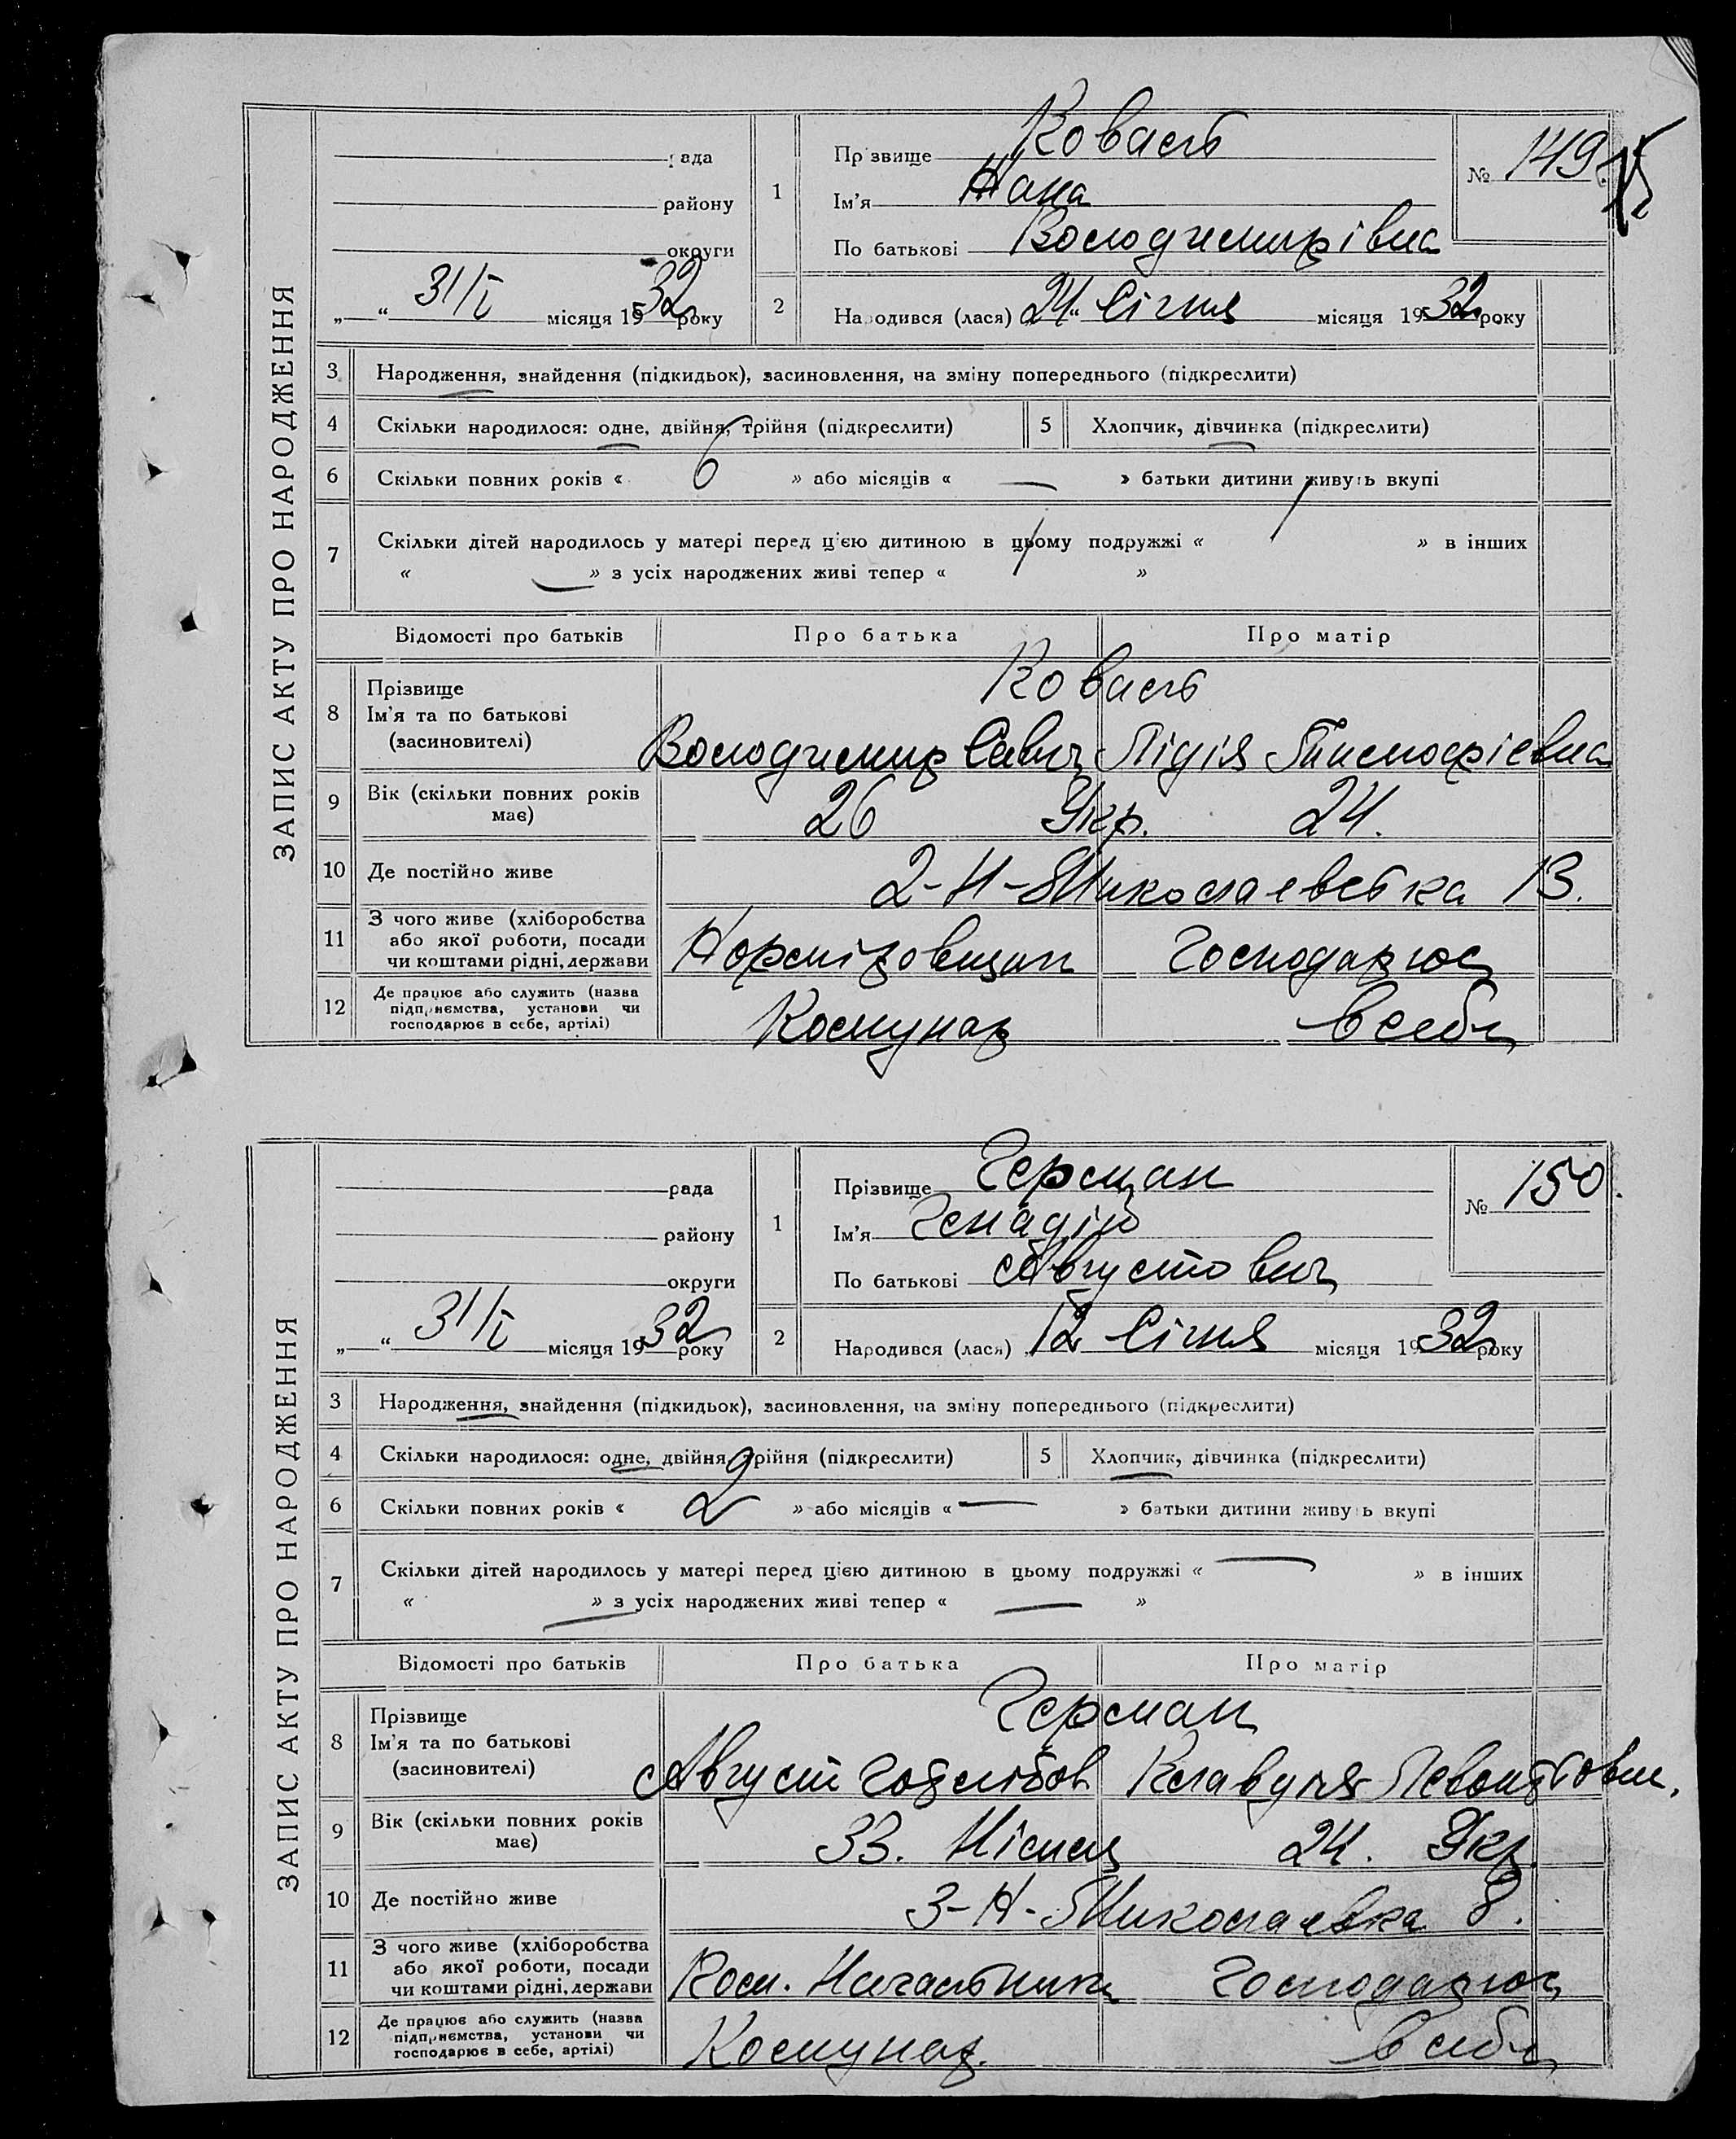 ЗАПИС АКТУ ПРО НАРОДЖЕННЯ
рада
району
округи
„ “ 31/I місяця 1932 року
1
Прізвище Коваль
Ім'я
По батькові Володимирівна
№ 149
2
Народився (лася) 24 Січня місяця 1932 року
3 Народження, знайдення (підкидьок), засиновлення, на зміну попереднього (підкреслити)
4 Скільки народилося: одне, двійня, трійня (підкреслити) 5 Хлопчик, дівчинка (підкреслити)
6 Скільки повних років « 6 » або місяців « — » батьки дитини живуть вкупі
7 Скільки дітей народилось у матері перед цією дитиною в цьому подружжі « 1 » в інших
« — » з усіх народжених живі тепер « 1 »
Відомості про батьків Про батька Про матір
8 Прізвище
Ім'я та по батькові
(засиновителі)
Коваль
Володимир Савич Лідія
9 Вік (скільки повних років
має)
26 Укр. 24.
10 Де постійно живе 2-Н-Миколаевська 13.
11 З чого живе (хліборобства
або якої роботи, посади
чи коштами рідні, держави
Норміровщик Господарює
12 Де працює або служить (назва
підприємства, установи чи
господарює в себе, артілі)
Комунар в себе
ЗАПИС АКТУ ПРО НАРОДЖЕННЯ
рада
району
округи
„ “ 31/I місяця 1932 року
1
Прізвище Герман
Ім'я Генадій
По батькові Августович
№ 150.
2
Народився (лася) 12 Січня місяця 1932 року
3 Народження, знайдення (підкидьок), засиновлення, на зміну попереднього (підкреслити)
4 Скільки народилося: одне, двійня, трійня (підкреслити) 5 Хлопчик, дівчинка (підкреслити)
6 Скільки повних років « 2 » або місяців « — » батьки дитини живуть вкупі
7 Скільки дітей народилось у матері перед цією дитиною в цьому подружжі « — » в інших
« — » з усіх народжених живі тепер « — »
Відомості про батьків Про батька Про матір
8 Прізвище
Ім'я та по батькові
(засиновителі)
Герман
Август Клавдія
9 Вік (скільки повних років
має)
33. Німец 24. Укр.
10 Де постійно живе 3-Н-Миколаевка 8.
11 З чого живе (хліборобства
або якої роботи, посади
чи коштами рідні, держави
Господарює
12 Де працює або служить (назва
підприємства, установи чи
господарює в себе, артілі)
Комунар. в себе